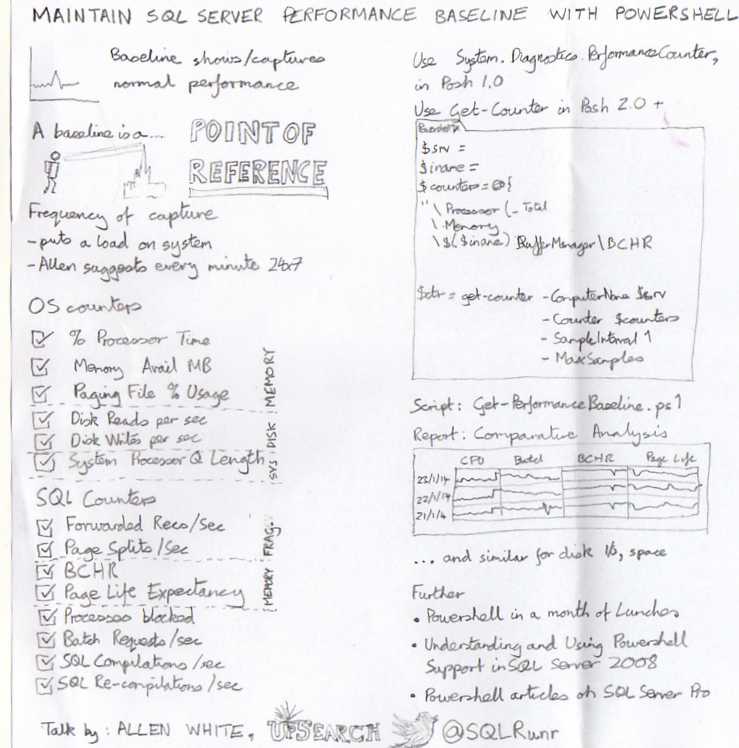 MAINTAIN SQL SERVER PERFORMANCE BASELINE WITH POWERSHELL
Baseline shows/captures
normal performance
A baseline is a...
POINT OF
REFERENCE
Frequency of capture
- puts a load on system
- Allen suggests every minute 24x7
OS counters
% Processor Time
Memory Avail MB
Paging File % Usage
MEMORY
Disk Reads per sec
Disk Writes per sec
DISK
System Processor Q Length
SYS
SQL Counters
Forwarded Recs/Sec
Page Splits/Sec
FRAG.
BCHR
Page Life Expectancy
MEMORY
Processes blocked
Batch Requests/sec
SQL Compilations/sec
SQL Re-compilations/sec
Use System.Diagnostics.PerformanceCounter,
in Posh 1.0
Use Get-Counter in Posh 2.0 +
$srv =
$iname =
$counters = @{
"\Processor (_Total
\Memory
\$($iname) BufferManager\BCHR
$ctr = get-counter -ComputerName $srv
- Counter $counters
- SampleInterval 1
- MaxSamples
Script: Get-PerformanceBaseline.ps1
Report: Comparative Analysis
CPU Batch BCHR Page Life
23/1/14
22/1/14
21/1/4
... and similar for disk I/O, space
Further
• Powershell in a month of Lunches
• Understanding and Using Powershell
Support in SQL Server 2008
• Powershell articles on SQL Server Pro
Talk by: ALLEN WHITE, UPSEARCH @SQLRunr